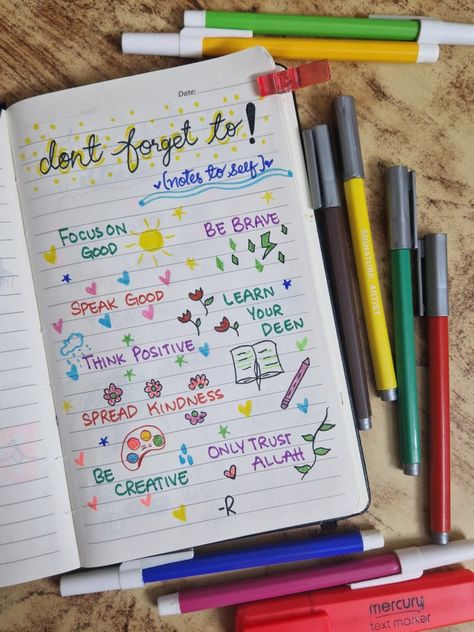 Date:
dont forget to!
(notes to self)
FOCUS ON
GOOD
BE BRAVE
SPEAK GOOD
LEARN
YOUR
DEEN
THINK POSITIVE
SPREAD KINDNESS
BE
CREATIVE
ONLY TRUST
ALLAH
-R
SIGNATURE ARTIST
mercury
text marker